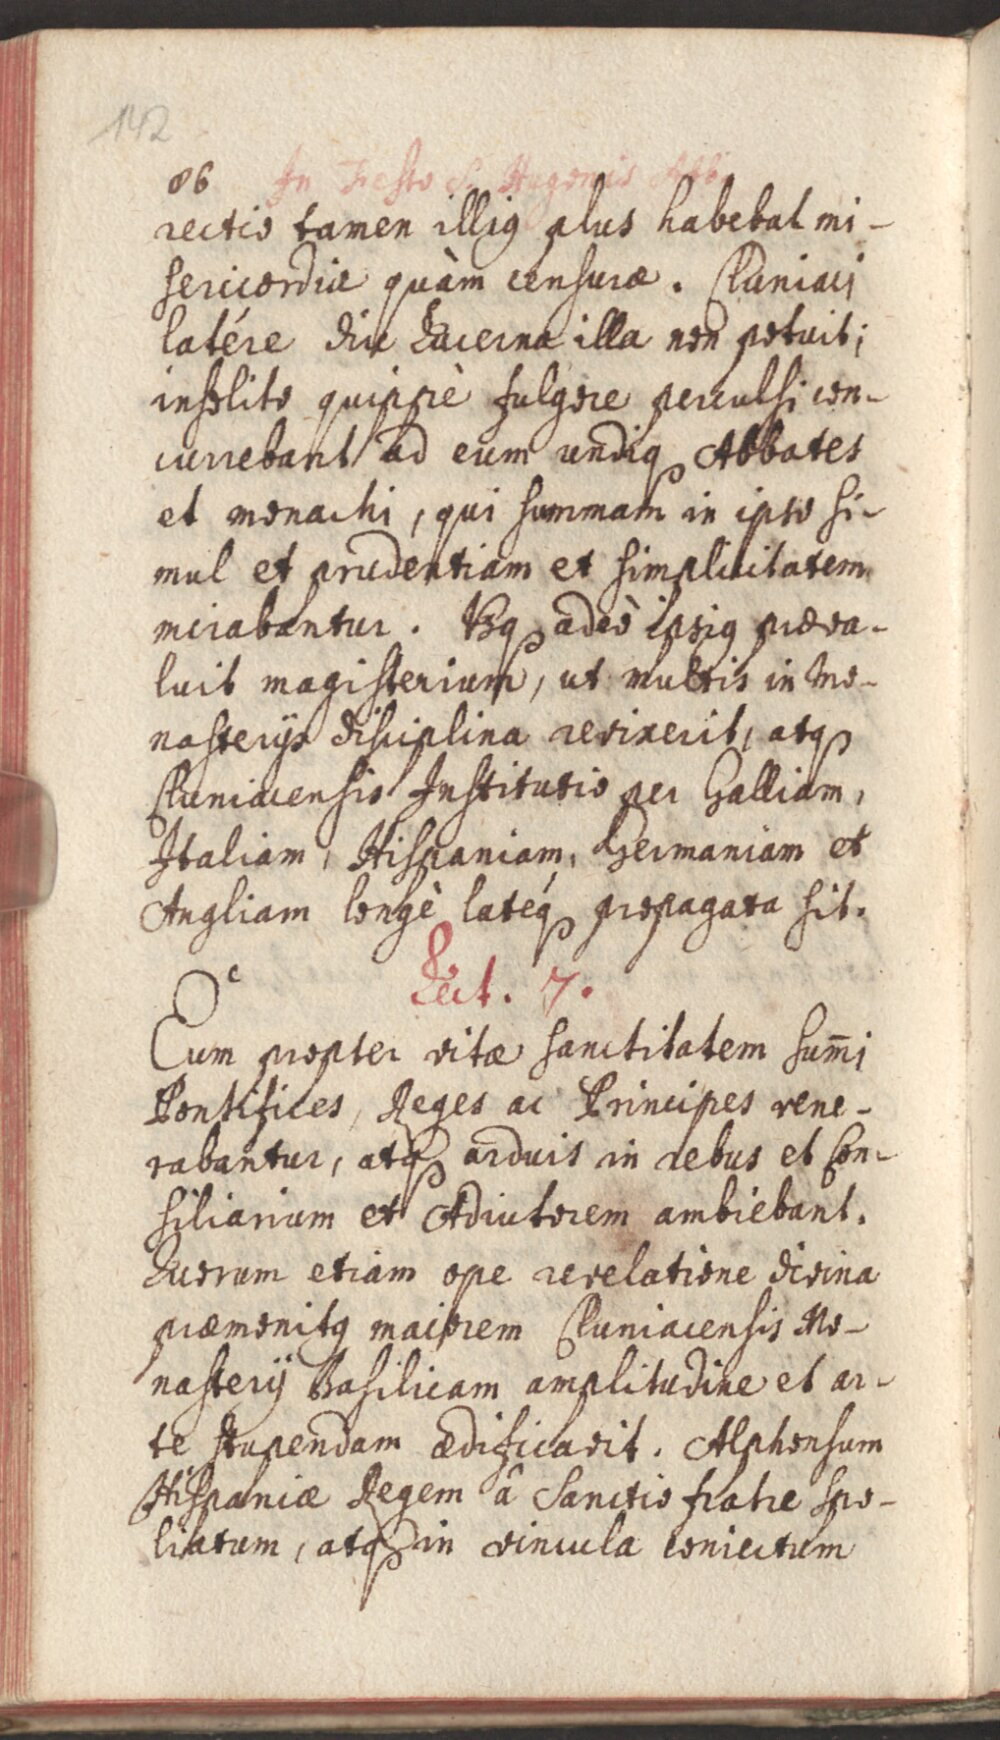 142
86 In Festo S. Hugonis Abb:
rectio tamen illig plus habebat mi-
sericordiæ quàm censuræ. Cluniaci
latére diu Lucerna illa non potuit;
insolito quippè fulgore perculsi con-
currebant ad eum undiq Abbates
et monachi, qui summam in ipso si-
mul et prudentiam et simplicitatem
mirabantur. Usq adeò ipsig præva-
luit magisterium, ut multis in Mo-
nasterijs disciplina revixerit, atq
Cluniacensis Institutio per Galliam,
Italiam, Hispaniam, Germaniam et
Angliam longè latéq propagata sit.
Lect. 7.
Cum propter vitæ sanctitatem sum̄i
Pontifices, Reges ac Principes vene-
rabantur, atq arduis in rebus et Con-
siliarium et Adiutorem ambiebant.
Quorum etiam ope revelatione divina
præmonitg maiorem Cluniacensis Mo-
nasterij Basilicam amplitudine et ar-
te stupendam ædificavit. Alphonsum
Hispaniæ Regem â Sanctio fratre spo-
liatum, atq in vincula coniectum